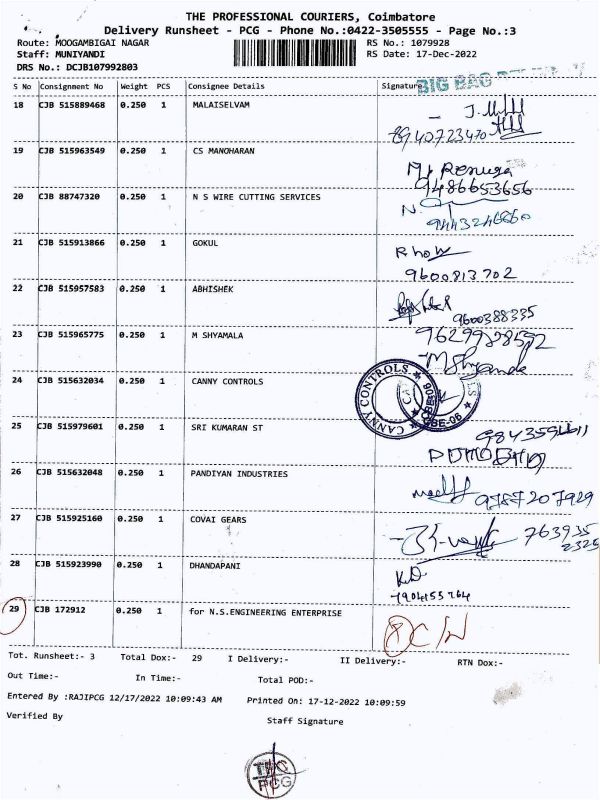 THE PROFESSIONAL COURIERS, Coimbatore
Delivery Runsheet - PCG - Phone No.:0422-3505555 - Page No.:3
Route: MOOGAMBIGAI NAGAR RS No.: 1079928
Staff: MUNIYANDI RS Date: 17-Dec-2022
DRS No.: DCJB107992803
S No Consignment No Weight PCS Consignee Details Signature BIG BAG
18 CJB 515889468 0.250 1 MALAISELVAM
8940723470
19 CJB 515963549 0.250 1 CS MANOHARAN
Renuga
9486653656
20 CJB 88747320 0.250 1 N S WIRE CUTTING SERVICES
9443246660
21 CJB 515913866 0.250 1 GOKUL
9600813702
22 CJB 515957583 0.250 1 ABHISHEK
9600388335
23 CJB 515965775 0.250 1 M SHYAMALA
24 CJB 515632034 0.250 1 CANNY CONTROLS
CANNY CONTROLS CBE-06
25 CJB 515979601 0.250 1 SRI KUMARAN ST
26 CJB 515632048 0.250 1 PANDIYAN INDUSTRIES
9787207929
27 CJB 515925160 0.250 1 COVAI GEARS
763935
2325
28 CJB 515923990 0.250 1 DHANDAPANI
7904153764
29 CJB 172912 0.250 1 for N.S.ENGINEERING ENTERPRISE
8 C/W
Tot. Runsheet:- 3 Total Dox:- 29 I Delivery:- II Delivery:- RTN Dox:-
Out Time:- In Time:- Total POD:-
Entered By :RAJIPCG 12/17/2022 10:09:43 AM Printed On: 17-12-2022 10:09:59
Verified By Staff Signature
TPC
PCG